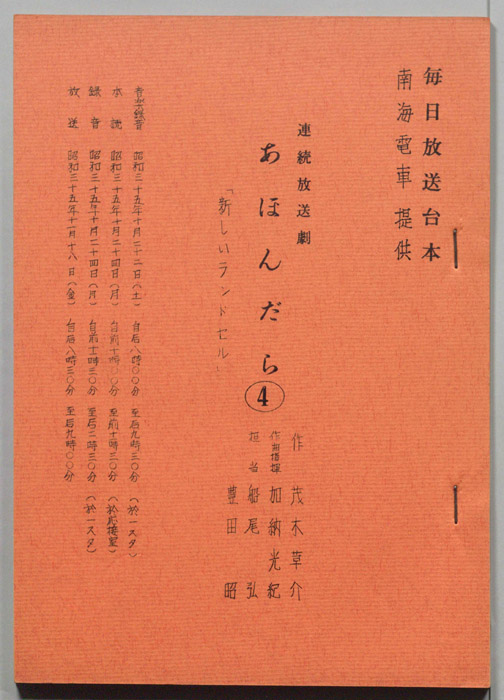 毎日放送台本
南海電車 提供
連続放送劇
あほんだら ④
「新しいランドセル」
作 茂木草介
作曲指揮 加納光紀
担当 船尾弘
豊田昭
音楽録音 昭和三十五年十月二十二日(土) 自后八時三〇分 至后九時三〇分 (於一スタ)
本読 昭和三十五年十月二十四日(月) 自前十時〇〇分 至前十一時三〇分 (於応接室)
録音 昭和三十五年十月二十四日(月) 自前十一時三〇分 至后二時三〇分 (於一スタ)
放送 昭和三十五年十一月十八日(金) 自后八時三〇分 至后九時〇〇分